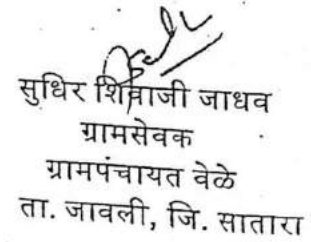 सुधिर शिवाजी जाधव
ग्रामसेवक
ग्रामपंचायत वेळे
ता. जावली, जि. सातारा